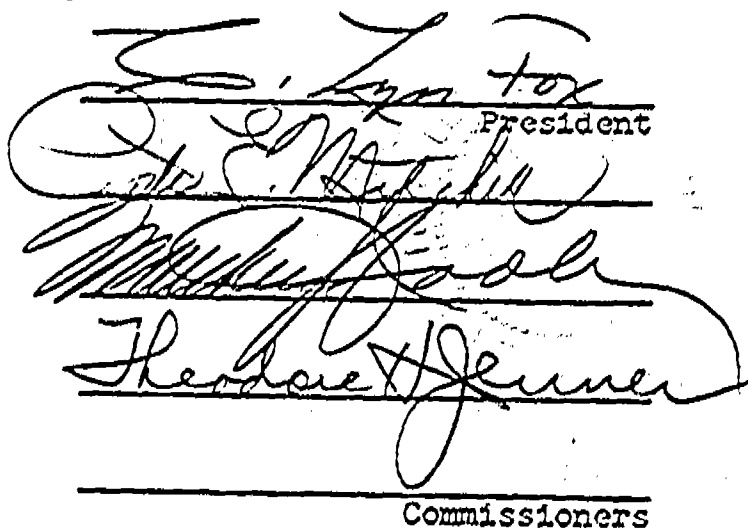 E. Lynn Fox
President
E. Mitchell
Theodore H Jenner
Commissioners